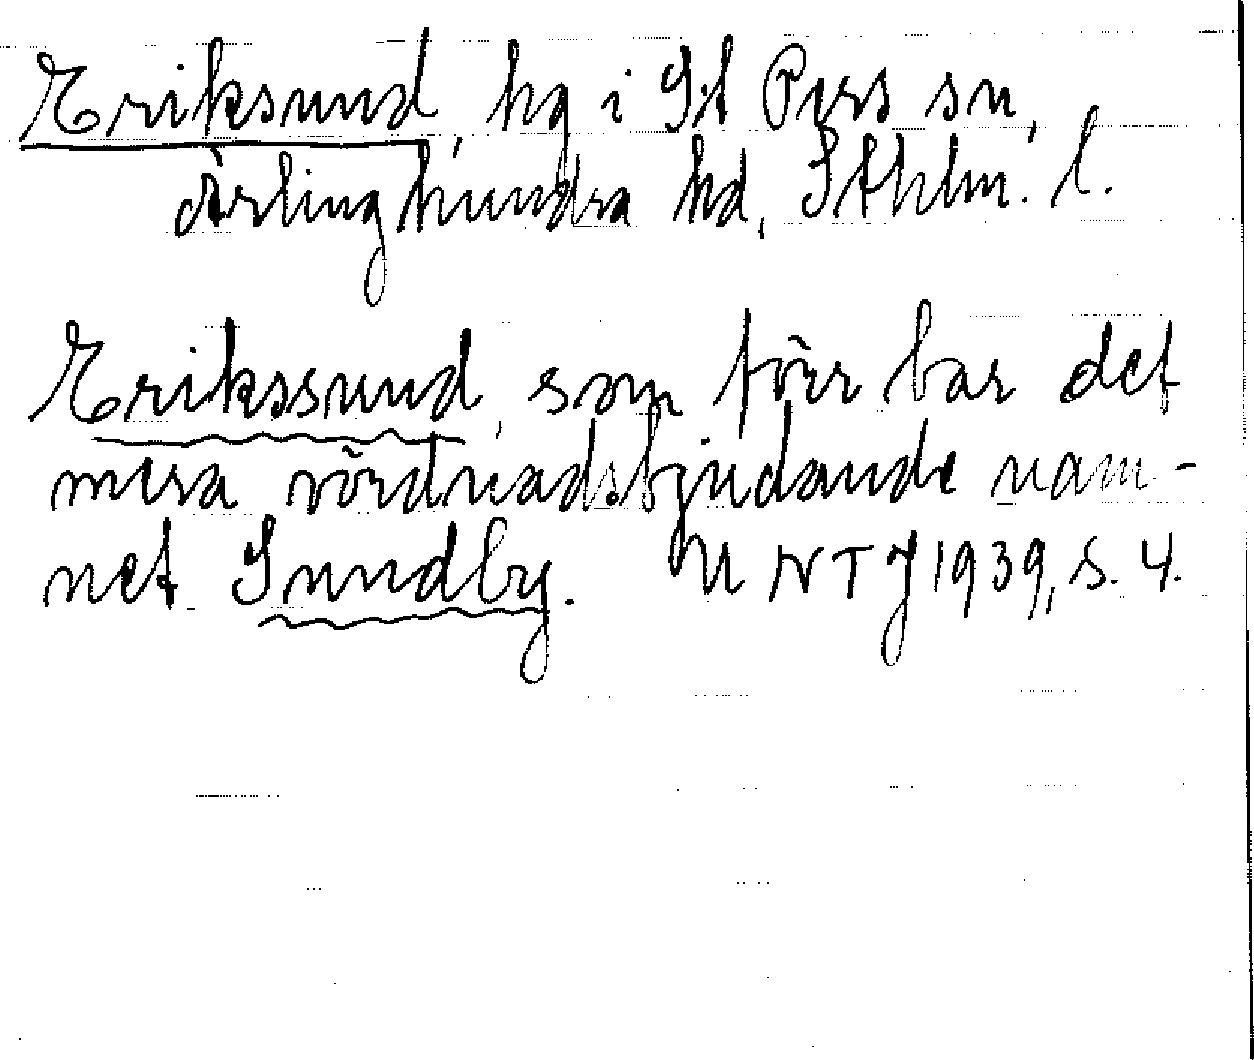 Eriksund, hg i S:t Pers sn,
Ärlinghundra hd, Sthlm. l.
Erikssund, som förr bar det
mera vördnadsbjudande nam-
net Sundby. UNTJ 1939, s. 4.